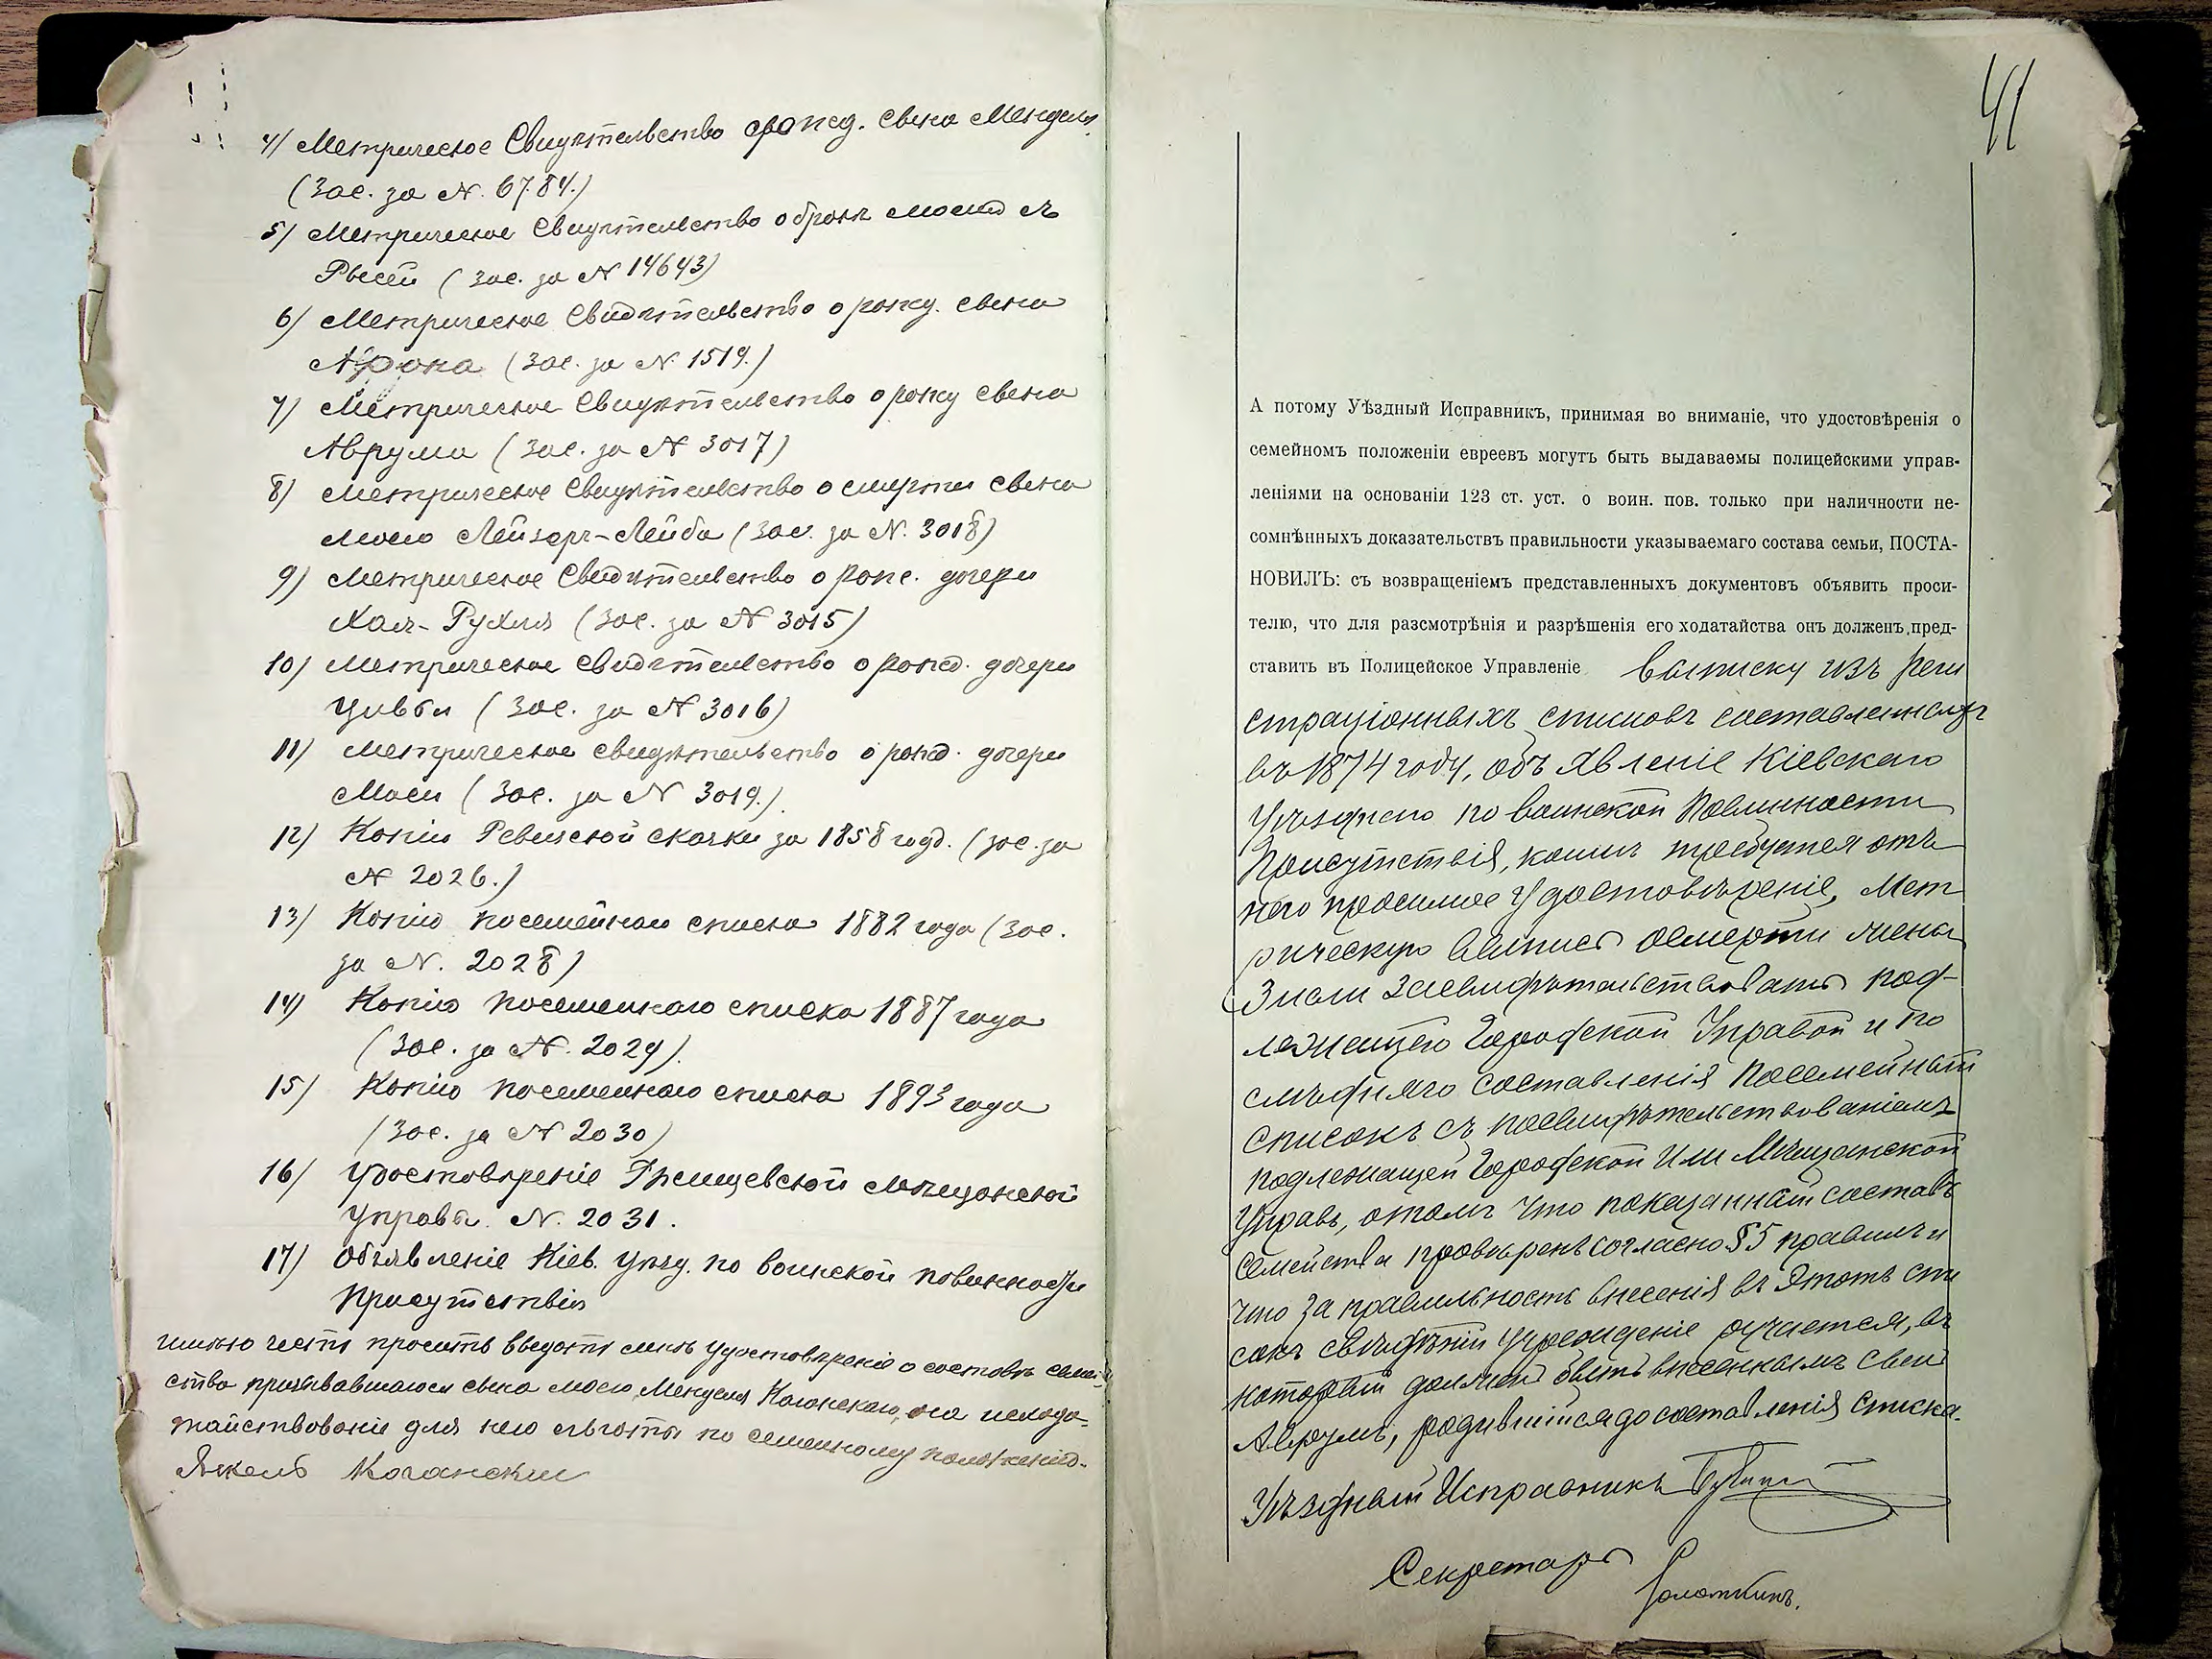 4) Метрическое Свидѣтельство о рожд. сына Менделя
(зас. за N. 6784.)
5) Метрическое Свидѣтельство о бракѣ моемъ съ
Рысей (зас. за N 14643)
6) Метрическое Свидѣтельство о рожд. сына
Арона (зас. за N. 1519.)
7) Метрическое Свидѣтельство о рожд сына
Аврума (зас. за N 3017)
8) Метрическое Свидѣтельство о смерти сына
моего Лейзоръ-Лейба (зас. за N. 3018)
9) Метрическое Свидѣтельство о рожд. дочери
Хая-Рухля (зас. за N 3015)
10) Метрическое свидѣтельство о рожд. дочери
Цивьи (зас. за N 3016)
11) Метрическое свидѣтельство о рожд. дочери
Маси (зас. за N 3019.)
12) Копію Ревизской сказки за 1858 годъ. (зас. за
N 2026.)
13) Копію посемейнаго списка 1882 года (зас.
за N. 2028)
14) Копію посемейнаго списка 1887 года
(зас. за N. 2029).
15) Копію посемейнаго списка 1893 года
(зас. за N 2030)
16) Удостовѣреніе Ржищевской мѣщанской
управы N. 2031.
17) Объявленіе Кіев. уѣзд. по воинской повинности
Присутствія
имѣю честь просить выдать мнѣ удостовѣреніе о составѣ семей-
ства призывавшагося сына моего Менделя Каганскаго, на исхода-
тайствованіе для него льготы по семейному положенію.
Янкель Каганскій
41
А потому Уѣздный Исправникъ, принимая во вниманіе, что удостовѣренія о
семейномъ положеніи евреевъ могутъ быть выдаваемы полицейскими управ-
леніями на основаніи 123 ст. уст. о воин. пов. только при наличности не-
сомнѣнныхъ доказательствъ правильности указываемаго состава семьи, ПОСТА-
НОВИЛЪ: съ возвращеніемъ представленныхъ документовъ объявить проси-
телю, что для разсмотрѣнія и разрѣшенія его ходатайства онъ долженъ пред-
ставить въ Полицейское Управленіе выписку изъ реги
страціонныхъ списковъ составленныхъ
въ 1874 году, объявленіе Кіевскаго
Уѣзднаго по воинской Повинности
Присутствія, коимъ требуется отъ
него просимое удостовѣреніе, Мет
рическую выпись о смерти члена
засвидѣтельствовать под-
лежащею Городской Управой и по
слѣдняго составленія Посемейный
списокъ съ посвидѣтельствованіемъ
подлежащей Городской или Мѣщанской
Управъ, о томъ что показанный составъ
семейства провѣренъ согласно §5 правилъ и
что за правильность внесенія въ этотъ спи
сокъ свѣдѣній учрежденіе ручается, въ
который долженъ быть внесеннымъ сынъ
Аврумъ, родившійся до составленія списка.
Уѣздный Исправникъ
Секретарь